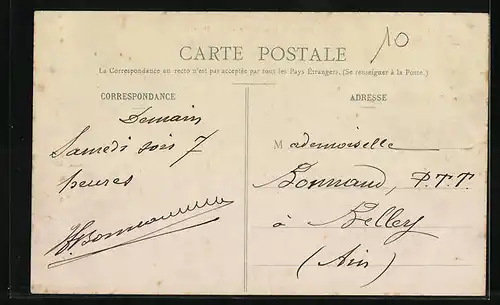 10
CARTE POSTALE
La Correspondance au recto n'est pas acceptée par tous les Pays Étrangers. (Se renseigner à la Poste.)
CORRESPONDANCE
Demain
Samedi soir 7
heures
ADRESSE
Mademoiselle
Bonnand, P.T.T.
à Belley
(Ain)